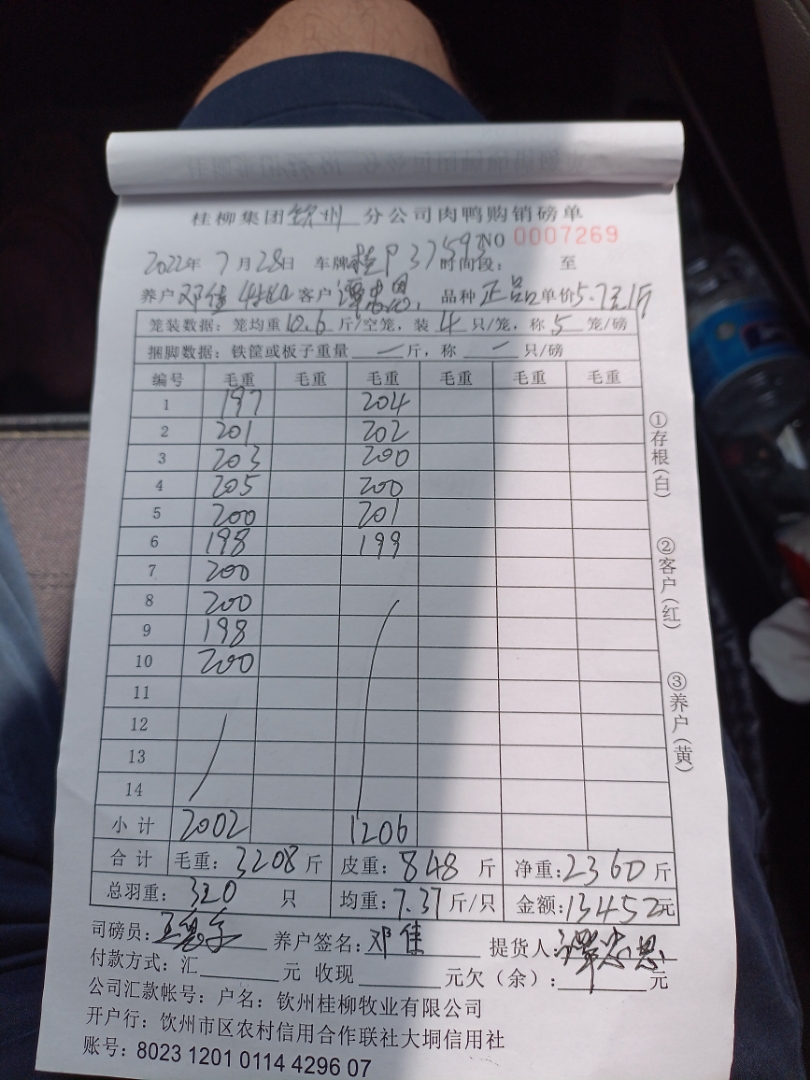 桂柳集团钦州分公司肉鸭购销磅单
NO 0007269
2022年7月28日 车牌桂P37593 时间段： 至
养户邓佳 客户谭忠恩 品种正品 单价5.7元/斤
笼装数据：笼均重10.6斤/空笼，装4只/笼，称5笼/磅
捆脚数据：铁筐或板子重量一斤，称一只/磅
编号 毛重 毛重 毛重 毛重 毛重 毛重
1 197 204
2 201 202
3 203 200
4 205 200
5 200 201
6 198 199
7 200
8 200
9 198
10 200
11
12
13
14
小计 2002 1206
合计 毛重：3208斤 皮重：848斤 净重：2360斤
总羽重：320只 均重：7.37斤/只 金额：13452元
司磅员： 养户签名：邓佳 提货人：谭忠恩
付款方式：汇 元 收现 元欠（余）： 元
公司汇款帐号：户名：钦州桂柳牧业有限公司
开户行：钦州市区农村信用合作联社大垌信用社
账号：8023 1201 0114 4296 07
①存根（白）
②客户（红）
③养户（黄）